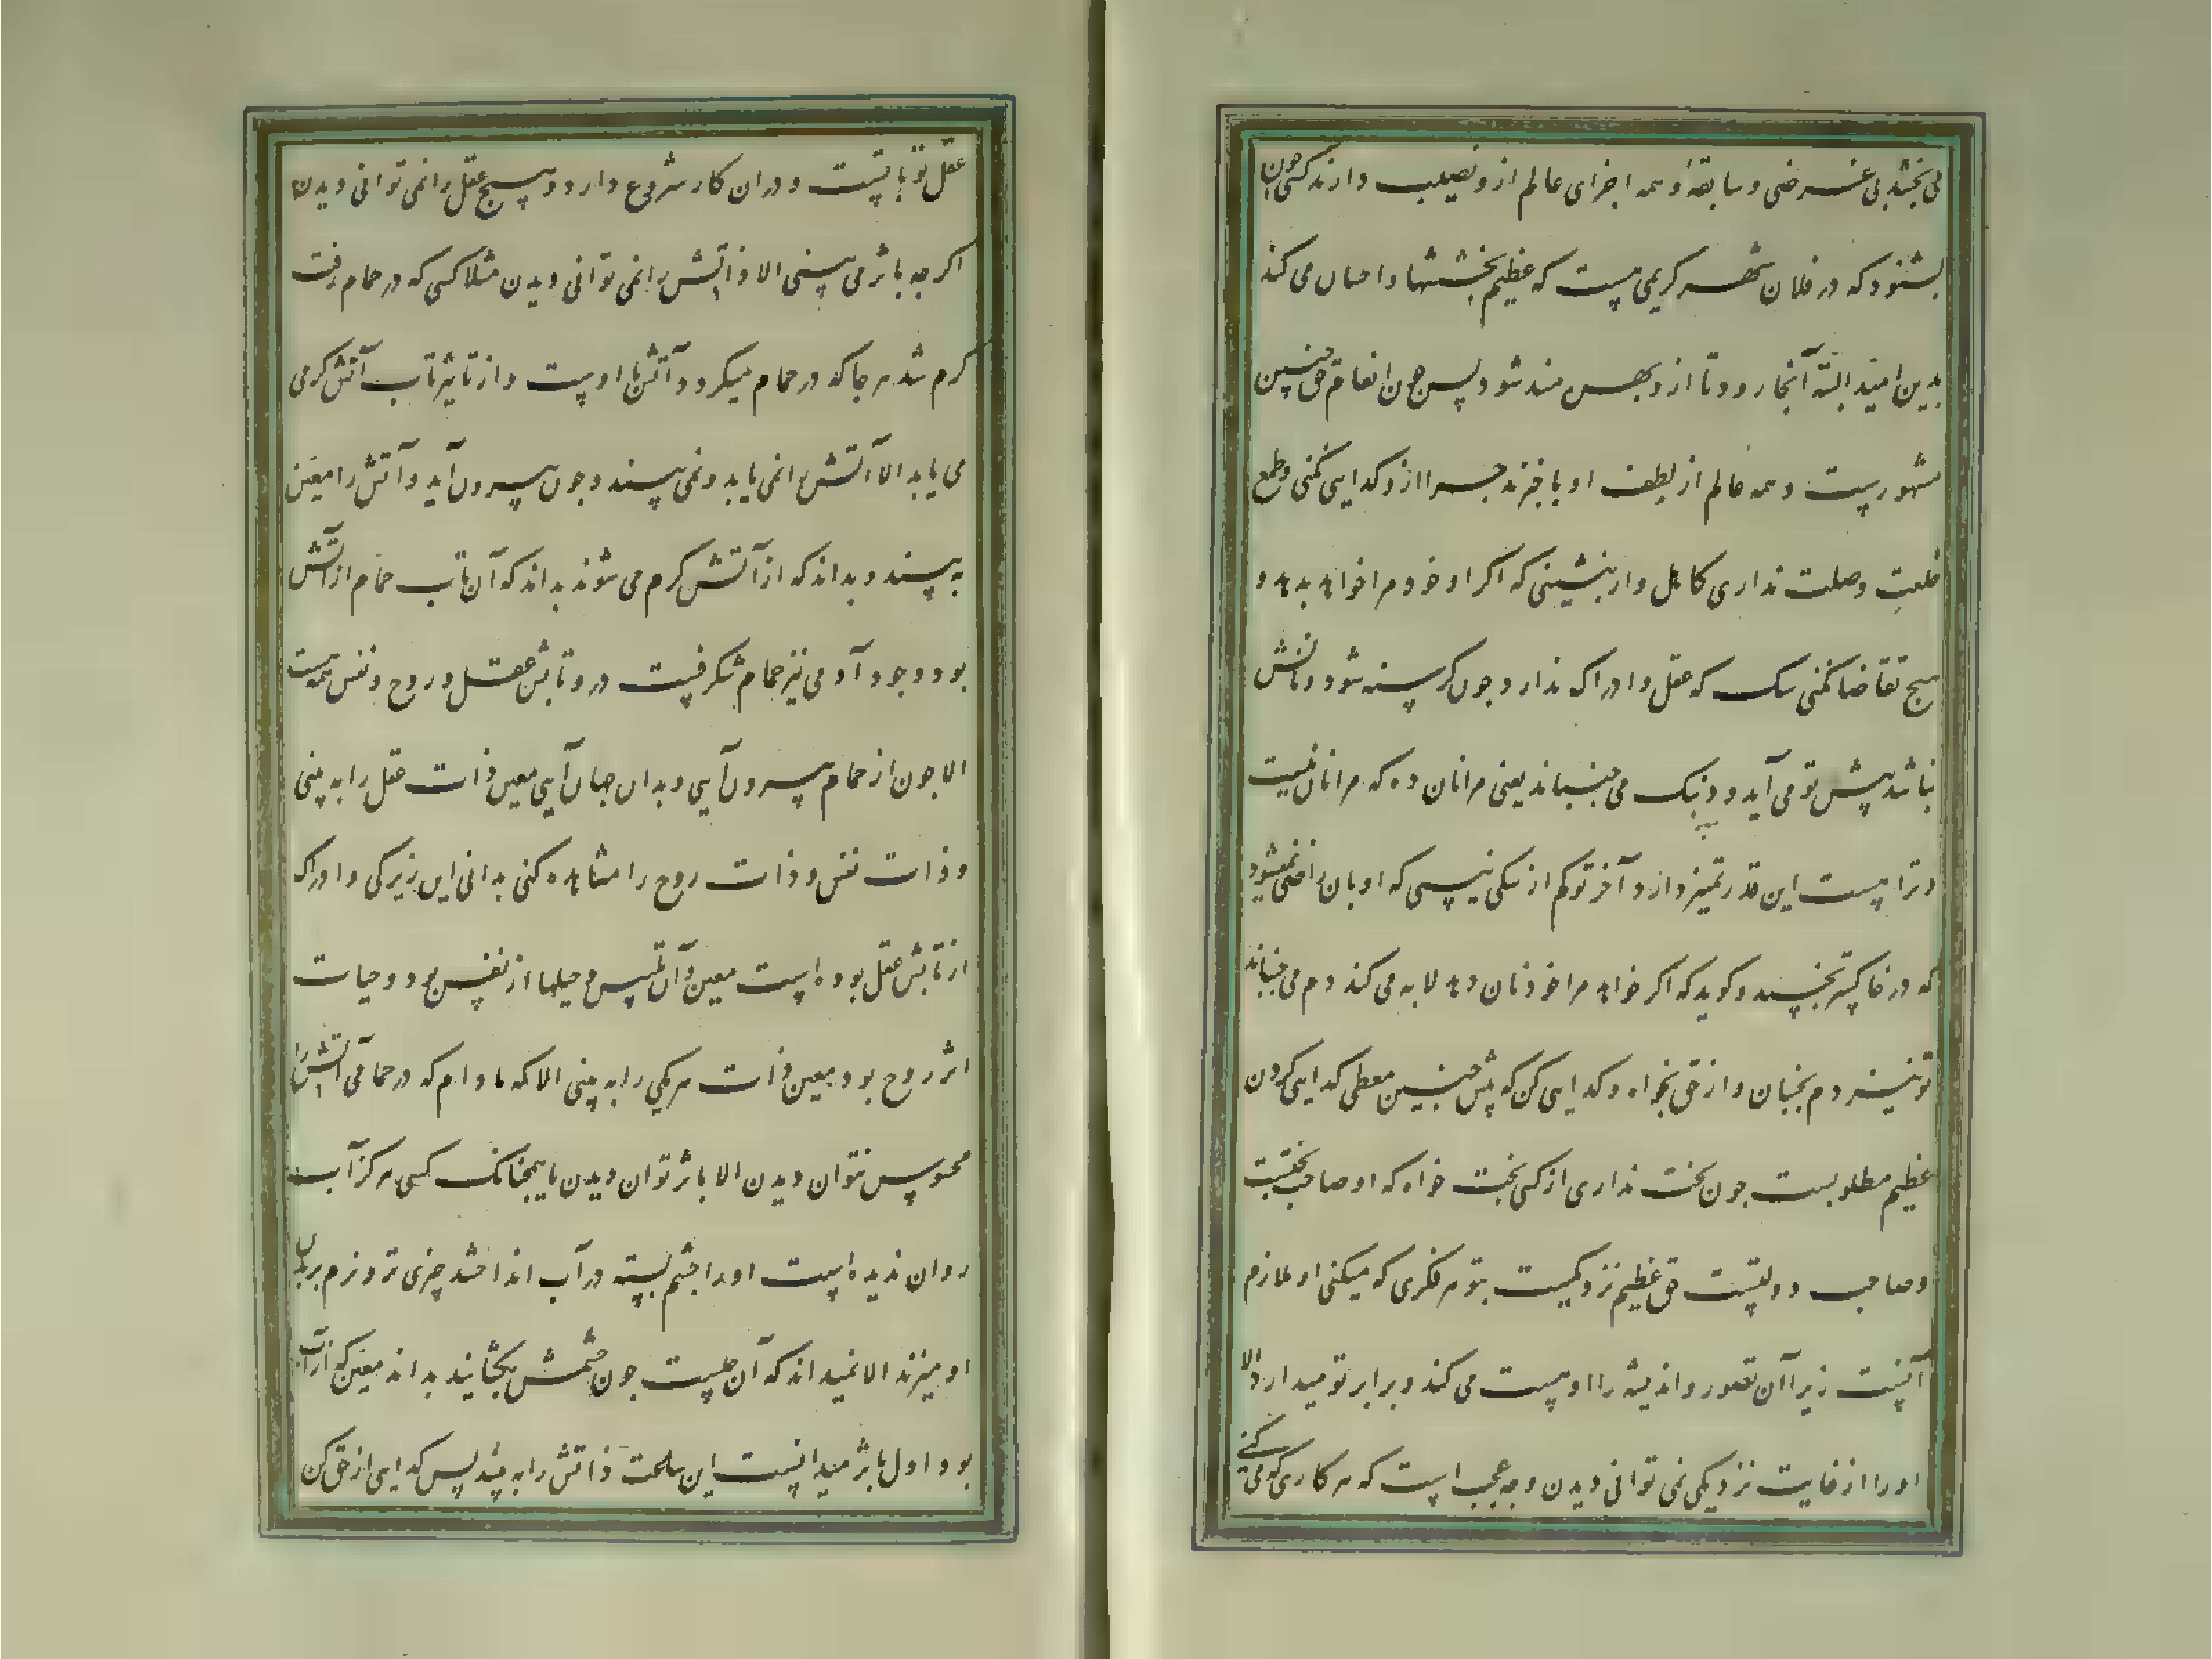 می بخشد بی غرضی و سابقهٔ و همه اجزای عالم ازو نصیب دارند کسی چون
بشنود که در فلان شهر کریمی هست که عظیم بخششها و احسان می کند
بدین امید البته آنجا رود تا ازو بهره‌مند شود پس چون انعام حق چنین
مشهورست و همه عالم از لطف او باخبرند چرا ازو گدایی نکنی و طمع
خلعت و صلت نداری کاهل وار بنشینی که اگر او خود مرا خواهد بدهد و
هیچ تقاضا نکنی سک که عقل و ادراک ندارد چون گرسنه شود و نانش
نباشد پیش تو می آید و دنبک می جنباند یعنی مرا نان ده که مرا نان نیست
و ترا هست این قدر تمیز دارد آخر تو کم از سکی نیستی که او بآن راضی نمیشود
که در خاکستر بخسبد و گوید که اگر خواهد مرا خود نان دهد لابه می کند و دم می جنباند
تو نیز دم بجنبان و از حق بخواه و گدایی کن که پیش چنین معطی گدایی کردن
عظیم مطلوبست چون بخت نداری از کسی بخت خواه که او صاحب بختست
و صاحب دولتست حق عظیم نزدیکست بتو هر فکری که میکنی او ملازم
آنست زیرا آن تصور و اندیشه را او هست می کند و برابر تو میدارد الا
او را از غایت نزدیکی نمی توانی دیدن و چه عجب است که هر کاری که می کنی
عقل تو با تست و در آن کار شروع دارد و هیچ عقل را نمی توانی دیدن
اگرچه باثر می بینی الا ذاتش را نمی توانی دیدن مثلا کسی که در حمام رفت
گرم شد هر جا که در حمام میگردد آتش با اوست و از تاثیر تاب آتش گرمی
می یابد الا آتش را نمی یابد و نمی بیند و چون بیرون آید و آتش را معین
به بیند و بداند که از آتش گرم می شوند بداند که آن تاب حمام از آتش
بود وجود آدمی نیز حمام شگرفیست درو تابش عقل و روح و نفس همه هست
الا چون از حمام بیرون آیی و بدان جهان آیی معین ذات عقل را به بینی
و ذات نفس و ذات روح را مشاهده کنی بدانی این زیرکی و ادراک
از تابش عقل بوده است معین و آن تلبیس و حیلها از نفس بود و حیات
اثر روح بود معین ذات هر یکی را به بینی الا که مادام که در حمامی آتش را
محسوس نتوان دیدن الا باثر توان دیدن یا همچنانک کسی هرگز آب
روان ندیده است او را چشم بسته در آب انداختند چیزی تر و نرم بر بدن
او میزند الا نمیداند که آن چیست چون چشمش بگشایند بداند معین که آن آب
بود اول باثر میدانست این ساعت ذاتش را به بیند پس گدایی از حق کن